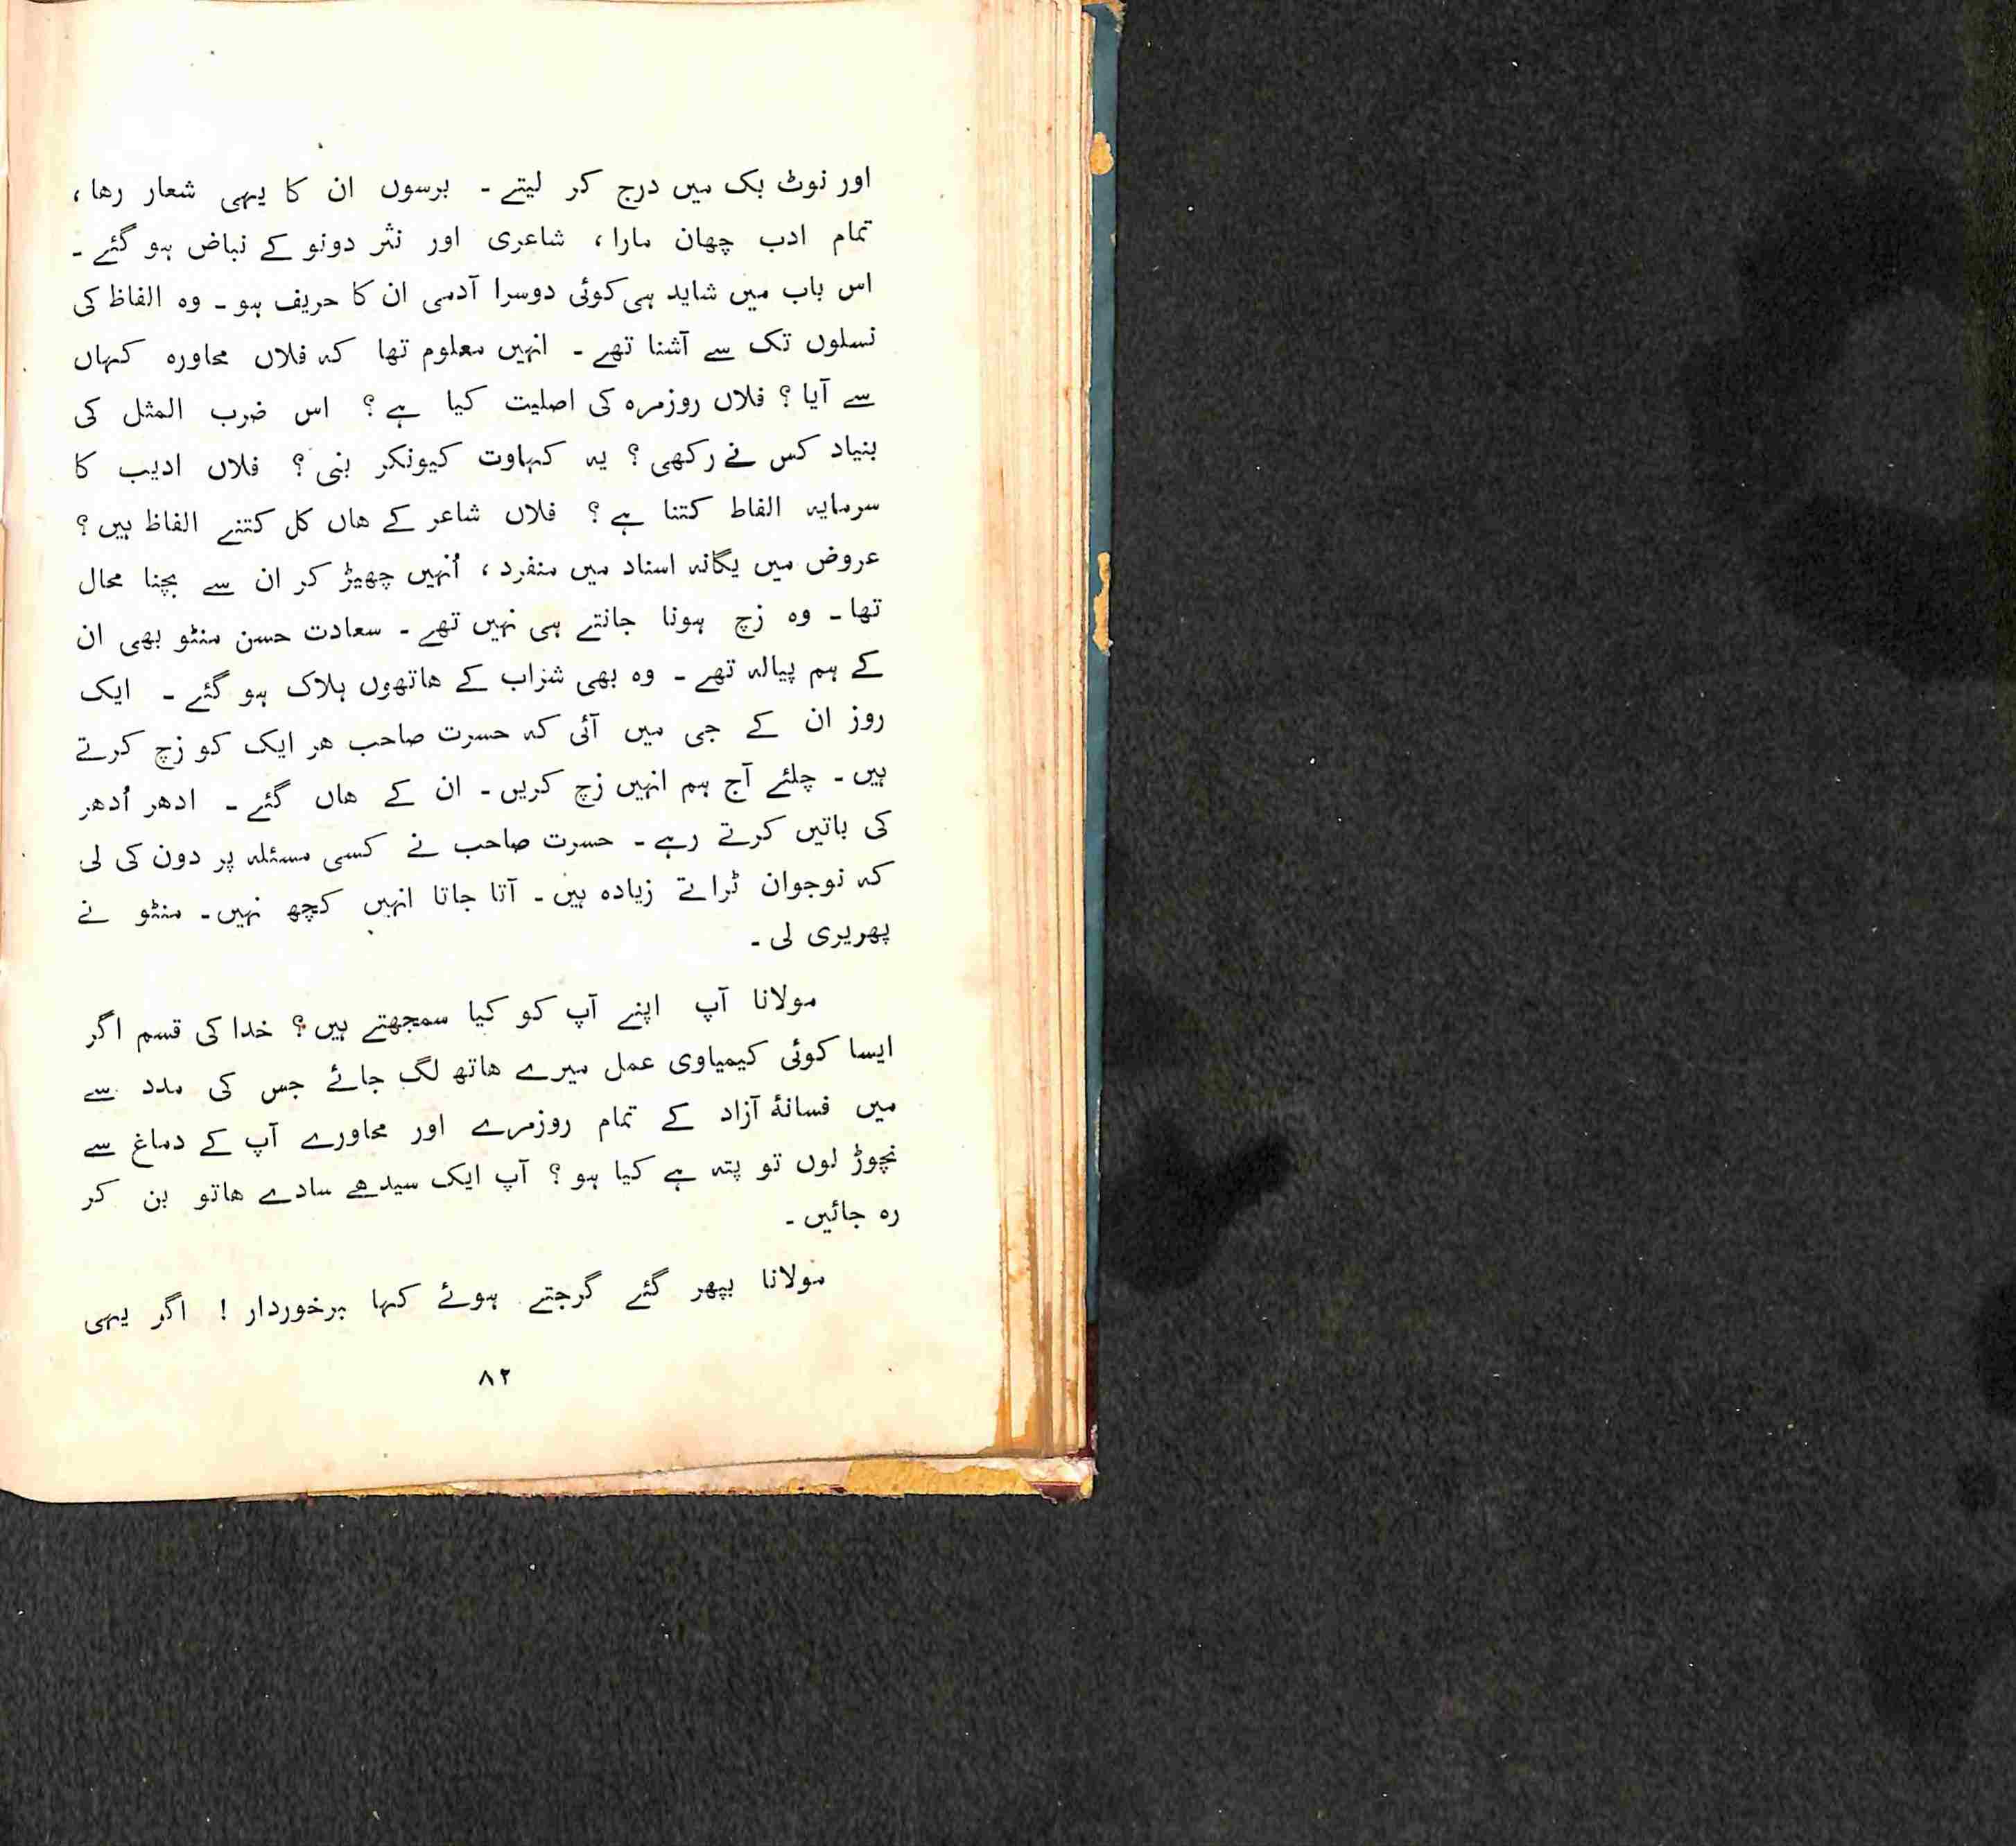 اور نوٹ بک میں درج کر لیتے ۔ برسوں ان کا یہی شعار رھا ،
تمام ادب چھان مارا ، شاعری اور نثر دونو کے نباض ہو گئے ۔
اس باب میں شاید ہی کوئی دوسرا آدمی ان کا حریف ہو ۔ وہ الفاظ کی
نسلوں تک سے آشنا تھے ۔ انہیں معلوم تھا کہ فلاں محاورہ کہاں
سے آیا ؟ فلاں روزمرہ کی اصلیت کیا ہے ؟ اس ضرب المثل کی
بنیاد کس نے رکھی ؟ یہ کہاوت کیونکر بنی ؟ فلاں ادیب کا
سرمایہ الفاط کتنا ہے ؟ فلاں شاعر کے ھاں کل کتنے الفاظ ہیں ؟
عروض میں یگانہ اسناد میں منفرد ، اُنہیں چھیڑ کر ان سے بچنا محال
تھا ۔ وہ زچ ہونا جانتے ہی نہیں تھے ۔ سعادت حسن منٹو بھی ان
کے ہم پیالہ تھے ۔ وہ بھی شزاب کے ھاتھوں ہلاک ہو گئے ۔ ایک
روز ان کے جی میں آئی کہ حسرت صاحب ھر ایک کو زچ کرتے
ہیں ۔ چلئے آج ہم انہیں زچ کریں ۔ ان کے ھاں گئے ۔ ادھر اُدھر
کی باتیں کرتے رہے ۔ حسرت صاحب نے کسی مسئلہ پر دون کی لی
کہ نوجوان ٹراتے زیادہ ہیں ۔ آتا جاتا انہیں کچھ نہیں ۔ منٹو نے
پھریری لی ۔
مولانا آپ اپنے آپ کو کیا سمجھتے ہیں ؟ خدا کی قسم اگر
ایسا کوئی کیمیاوی عمل میرے ھاتھ لگ جائے جس کی مدد سے
میں فسانۂ آزاد کے تمام روزمرے اور محاورے آپ کے دماغ سے
نچوڑ لوں تو پتہ ہے کیا ہو ؟ آپ ایک سیدھے سادے ھاتو بن کر
رہ جائیں ۔
مولانا بپھر گئے گرجتے ہوئے کہا برخوردار ! اگر یہی
۸۲